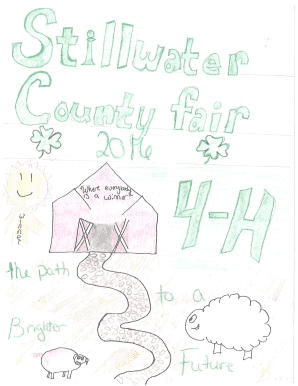 Stillwater
County fair
2016
Where everybody
is a winner
winner
4-H
the path
to a
Brighter
Future